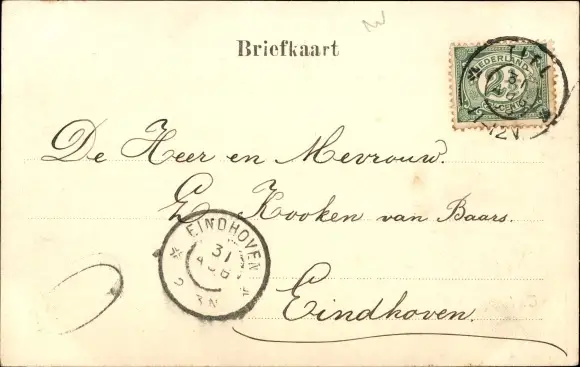 Briefkaart
NEDERLAND
2½
TIEL
31
12V
De Heer en Mevrouw.
Kooken van Baars.
EINDHOVEN
31
3N
Eindhoven.